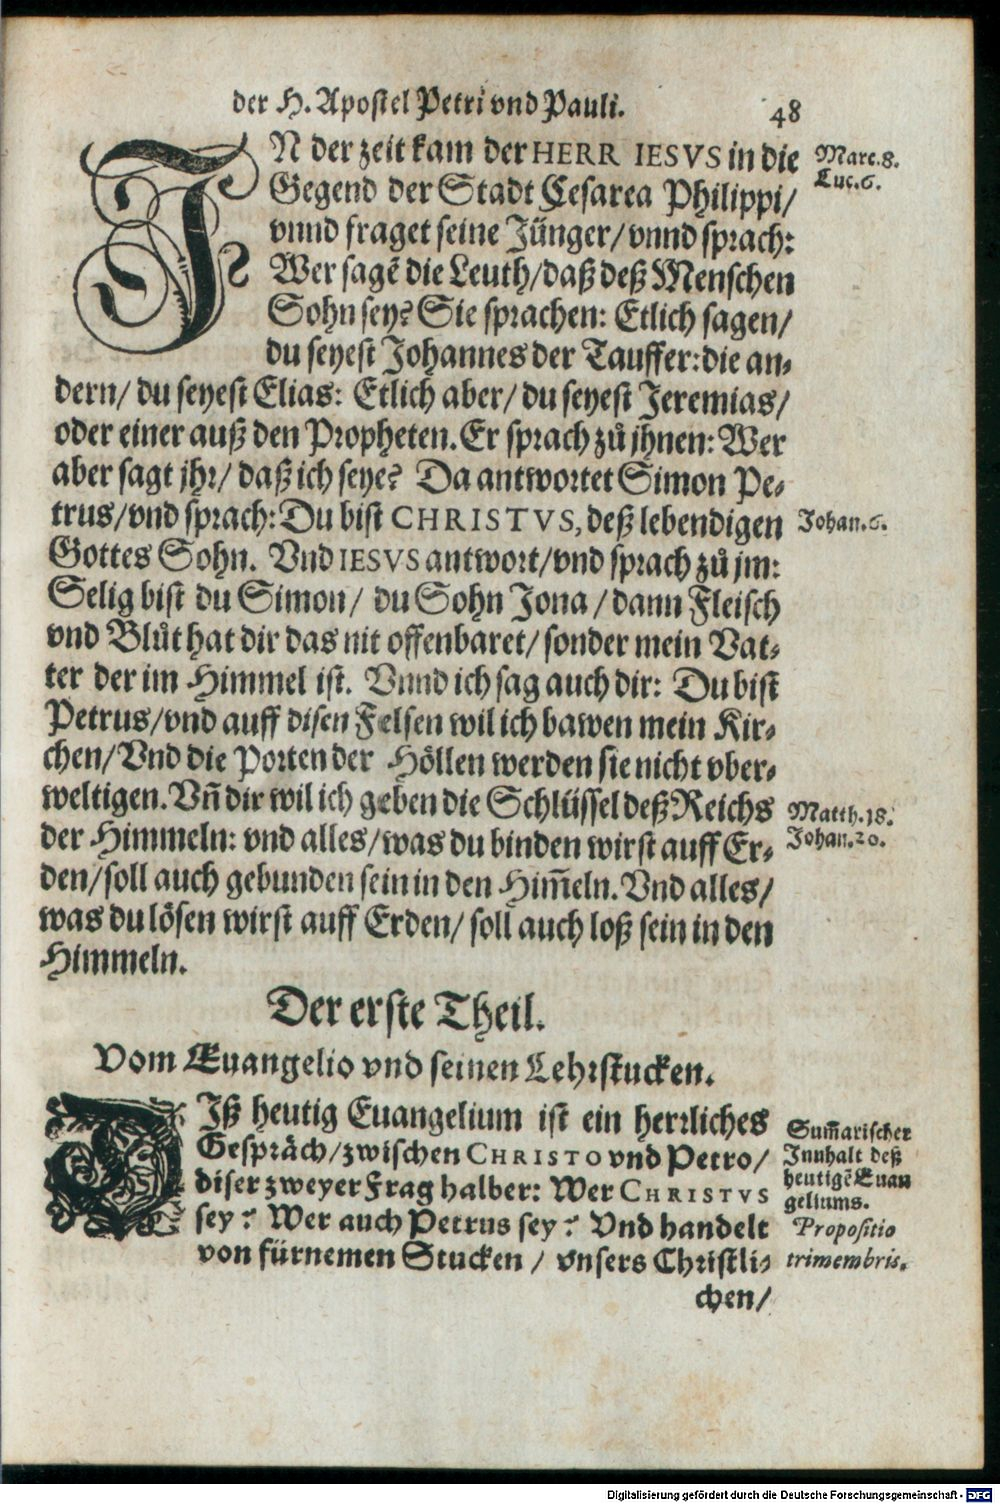 der H. Apostel Petri vnd Pauli. 48
IN der zeit kam der HERR IESVS in die
Marc.8.
Gegend der Stadt Cesarea Philippi/
Luc.6.
vnnd fraget seine Jünger/ vnnd sprach:
Wer sagẽ die Leuth/daß deß Menschen
Sohn sey? Sie sprachen: Etlich sagen/
du seyest Johannes der Tauffer: die an-
dern/ du seyest Elias: Etlich aber/ du seyest Jeremias/
oder einer auß den Propheten. Er sprach zů jhnen: Wer
aber sagt jhr/ daß ich seye? Da antwortet Simon Pe-
trus/vnd sprach: Du bist CHRISTVS, deß lebendigen
Johan.6.
Gottes Sohn. Vnd IESVS antwort/vnd sprach zů jm:
Selig bist du Simon/ du Sohn Jona/dann Fleisch
vnd Blůt hat dir das nit offenbaret/ sonder mein Vat-
ter der im Himmel ist. Vnnd ich sag auch dir: Du bist
Petrus/vnd auff disen Felsen wil ich bawen mein Kir-
chen/Vnd die Porten der Höllen werden sie nicht vber-
weltigen. Vñ dir wil ich geben die Schlüssel deß Reichs
Matth.18.
der Himmeln: vnd alles/was du binden wirst auff Er-
Johan.20.
den/soll auch gebunden sein in den Him̃eln. Vnd alles/
was du lösen wirst auff Erden/ soll auch loß sein in den
Himmeln.
Der erste Theil.
Vom Euangelio vnd seinen Lehrstucken.
DIß heutig Euangelium ist ein herrliches
Gespräch/zwischen CHRISTO vnd Petro/
diser zweyer Frag halber: Wer CHRISTVS
sey? Wer auch Petrus sey? Vnd handelt
von fürnemen Stucken / vnsers Christli-
chen/
Sum̃arischer
Innhalt deß
heutigẽ Euan
geliums.
Propositio
trimembris.
Digitalisierung gefördert durch die Deutsche Forschungsgemeinschaft - DFG